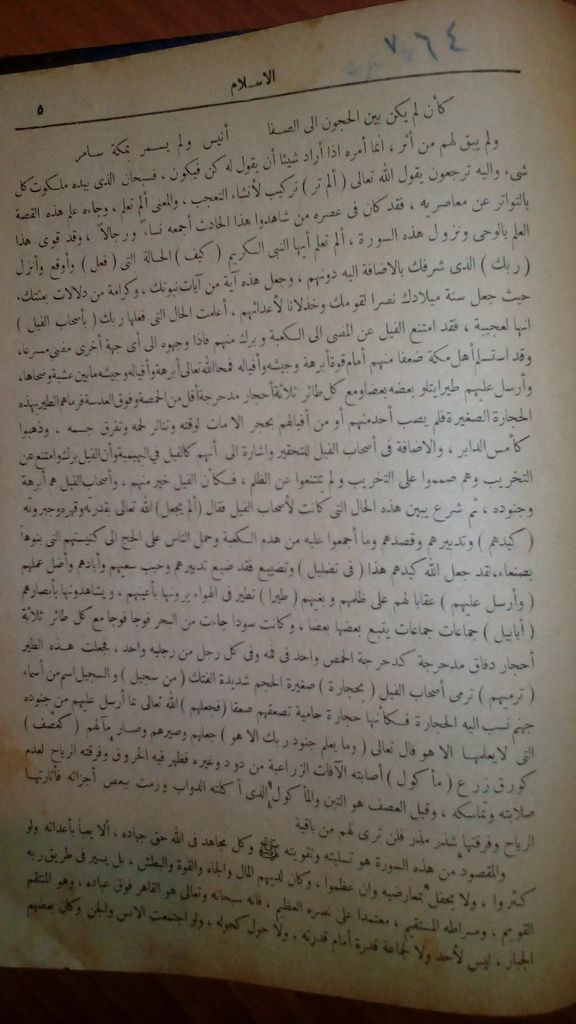 ٧٦٤
الاسلام
٥
كأن لم يكن بين الحجون الى الصفا أنيس ولم يسمر بمكة سامر
ولم يبق لهم من أثر ، انما أمره اذا أراد شيئا أن يقول له كن فيكون ، فسبحان الذى بيده ملكوت كل
شىء واليه ترجعون يقول الله تعالى ( ألم تر ) تركيب لأنشاء التعجب ، والمعنى ألم تعلم ، وجاءه علم هذه القصة
بالتواتر عن معاصريه ، فقد كان فى عصره من شاهدوا هذا الحادث أجمعه نساء ورجالا ، وقد قوى هذا
العلم بالوحى ونزول هذه السورة ، ألم تعلم أيها النبى الكريم ( كيف ) الحالة التى ( فعل ) وأوقع وأنزل
( ربك ) الذى شرفك بالاضافة اليه دونهم ، وجعل هذه آية من آيات نبوتك ، وكرامة من دلالات بعثتك ،
حيث جعل سنة ميلادك نصرا لقومك وخذلانا لأعدائهم ، أعلمت الحال التى فعلها ربك ( بأصحاب الفيل )
انها لعجيبة ، فقد امتنع الفيل عن المضى الى الكعبة وبرك منهم فاذا وجهوه الى أى جهة أخرى مضى مسرعا ،
وقد استسلم أهل مكة ضعفا منهم أمام قوة أبرهة وجيشه وأفياله فمحا الله تعالى أبرهة وأفياله وجيشه مابين عشية وضحاها ،
وأرسل عليهم طيرا يتلو بعضه بعضا ومع كل طائر ثلاثة أحجار مدحرجة أقل من الحمصة وفوق العدسة فرماهم الطير بهذه
الحجارة الصغيرة فلم يصب أحد منهم أو من أفيالهم بحجر الا مات لوقته وتناثر لحمه وتفرق جسمه ، وذهبوا
كأمس الدابر ، والاضافة فى أصحاب الفيل للتحقير واشارة الى أنهم كالفيل فى البهيمية وأن الفيل برك وامتنع عن
التخريب وهم صمموا على التخريب ولم يمتنعوا عن الظلم ، فكأن الفيل خير منهم ، وأصحاب الفيل هم أبرهة
وجنوده ، ثم شرع يبين هذه الحال التى كانت لأصحاب الفيل فقال ( ألم يجعل ) الله تعالى بقدرته وقهره وجبروته
( كيدهم ) وتدبيرهم وقصدهم وما أجمعوا عليه من هدم الكعبة وحمل الناس على الحج الى كنيستهم التى بنوها
بصنعاء ، لقد جعل الله كيدهم هذا ( فى تضليل ) وتضييع فقد ضيع تدبيرهم وخيب سعيهم وأبادهم وأضل عملهم
( وأرسل عليهم ) عقابا لهم على ظلمهم وبغيهم ( طيرا ) تطير فى الهواء يرونها بأعينهم ، ويشاهدونها بأبصارهم
( أبابيل ) جماعات جماعات يتبع بعضها بعضا ، وكانت سودا جاءت من البحر فوجا فوجا مع كل طائر ثلاثة
أحجار دقاق مدحرجة كدحرجة الحمص واحد فى فمه وفى كل رجل من رجليه واحد ، فجعلت هذه الطير
( ترميهم ) ترمى أصحاب الفيل ( بحجارة ) صغيرة الحجم شديدة الفتك ( من سجيل ) والسجيل اسم من أسماء
جهنم نسب اليه الحجارة فكأنها حجارة حامية تصعقهم صعقا ( فجعلهم ) الله تعالى بما أرسل عليهم من جنوده
التى لايعلمها الا هو قال تعالى ( وما يعلم جنود ربك الا هو ) جعلهم وصيرهم وصار مآلهم ( كعصف )
كورق زرع ( مأكول ) أصابته الآفات الزراعية من دود وغيره فظهر فيه الخروق وفرقته الرياح لعدم
صلابته وتماسكه ، وقيل العصف هو التبن والمأكول الذى أكلته الدواب ورمت ببعض أجزائه فأثارتها
الرياح وفرقتها شذر مذر فلن ترى لهم من باقية
والمقصود من هذه السورة هو تسليته وتقويته ﷺ وكل مجاهد فى الله حق جهاده ، ألا يعبأ بأعدائه ولو
كثروا ، ولا يحفل بمعارضيه وان عظموا ، وكان لديهم المال والجاه والقوة والبطش ، بل يسير فى طريق ربه
القويم ، وصراطه المستقيم ، معتمدا على نصره العظيم ، فانه سبحانه وتعالى هو القاهر فوق عباده ، وهو المنتقم
الجبار ، ليس لأحد ولا لجماعة قدرة أمام قدرته ، ولا حول كحوله ، ولو اجتمعت الانس والجن وكان بعضهم